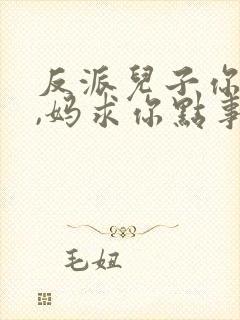 反派兒子你
,妈求你點事
毛妞